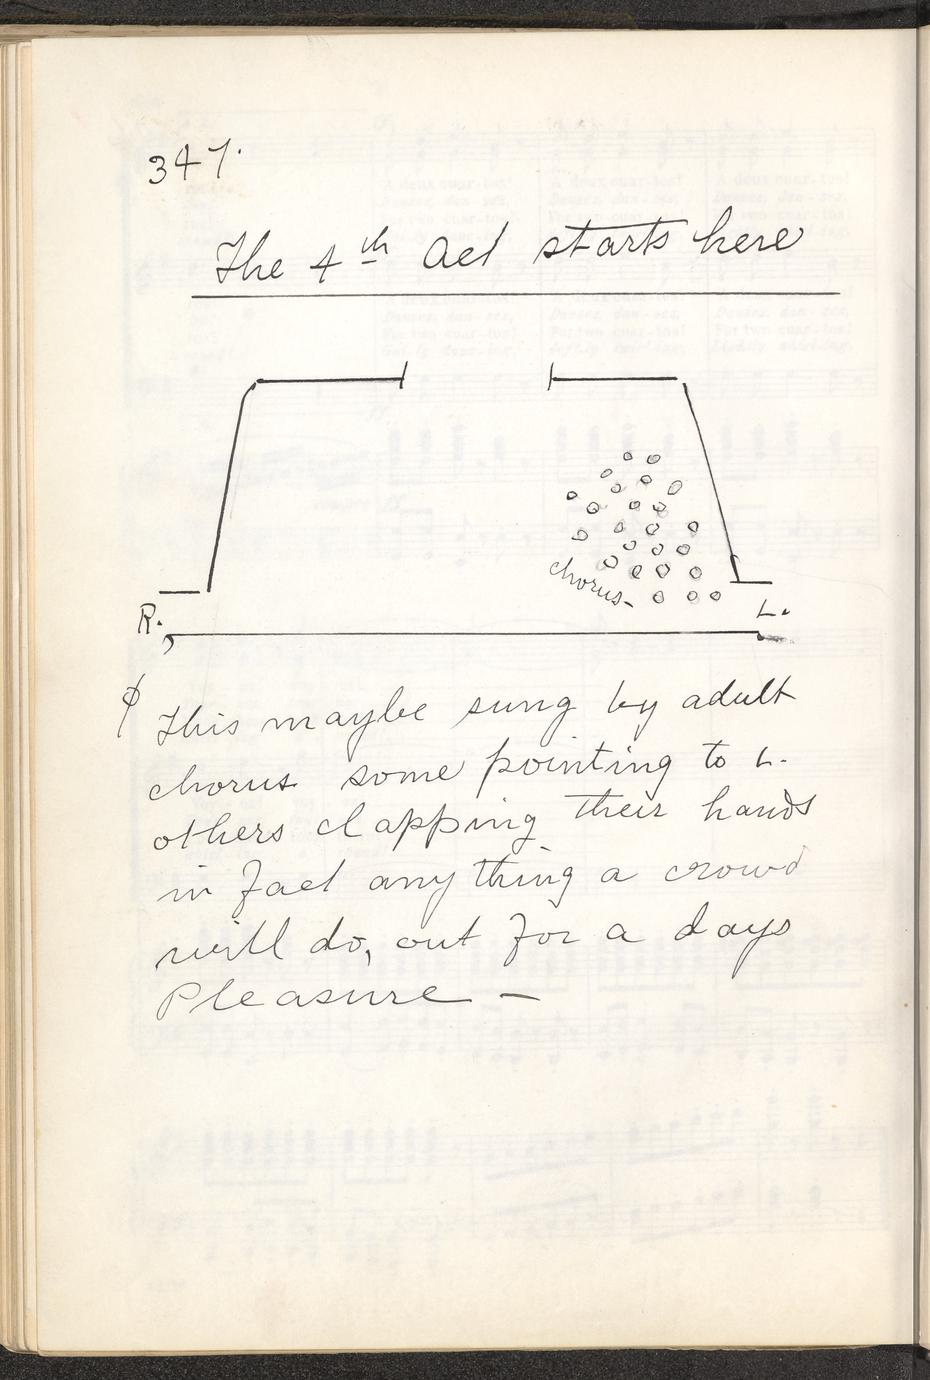 347.
The 4th Act starts here
chorus-
R.
L.
ϕ This maybe sung by adult
chorus some pointing to L.
others clapping their hands
in fact any thing a crowd
will do, out for a days
Pleasure —